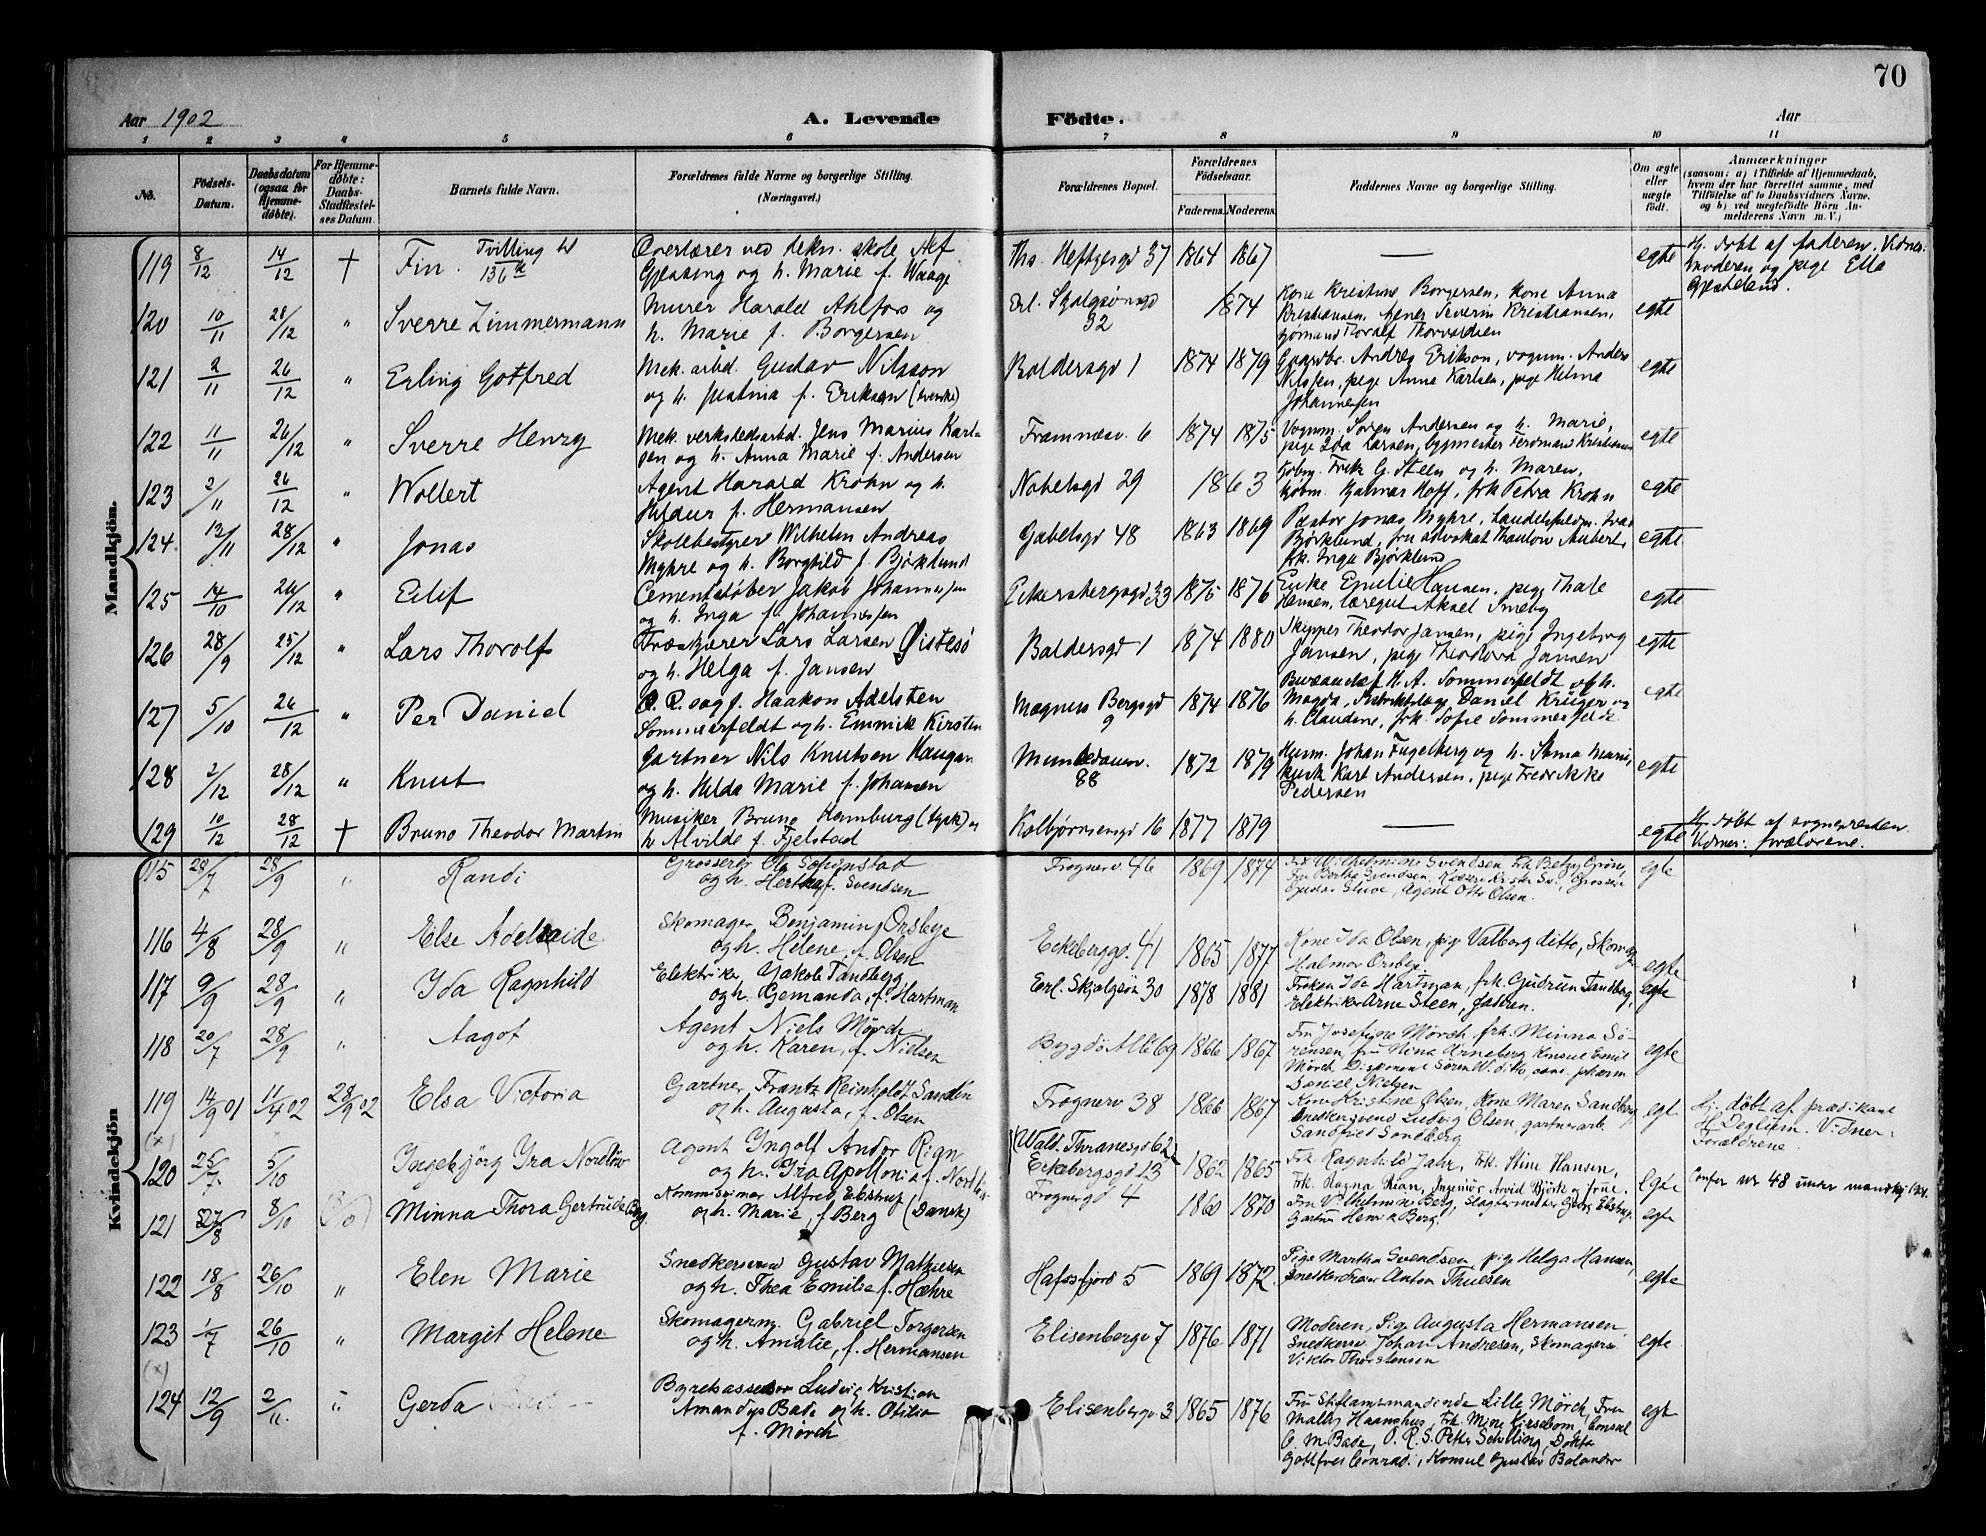 70
Aar 1902
A. Levende
Födte.
Aar
1 2 3 4 5 6 7 8 9 10 11
No.
Födsels-Datum.
Daabsdatum (ogsaa for Hjemme-døbte).
For Hjemme-døbte: Daabs-Stadfæstel-ses Datum.
Barnets fulde Navn.
Forældrenes fulde Navne og borgerlige Stilling.
(Næringsvei.)
Forældrenes Bopæl.
Forældrenes Fødselsaar.
Faderens. Moderens.
Faddernes Navne og borgerlige Stilling.
Om ægte eller uægte født.
Anmærkninger
(saasom: a) i Tilfælde af Hjemmedaab, hvem der har forrettet samme, med Tilföielse af to Daabsvidners Navne, og b) ved uægtefödte Börn Anmelderens Navn m. V.)
Mandkjön.
119 8/12 14/12 † Fin. Tvilling til 136 k Overlærer ved tekn. skole Alf
Gjessing og h. Marie f. Waage Ths. Heftyesgd 37 1864 1867 — egte Hj. døbt af faderen. Vidner:
moderen og pige Ella
120 10/11 28/12 " Sverre Zimmermann Murer Harald Ahlfors og
h. Marie f. Borgersen Erl. Skjalgsønsgd
32 1874 Kone Kristine Borgersen, Kone Anna
Kristiansen, Severin Kristiansen,
Toralf Thorvaldsen egte
121 2/11 26/12 " Erling Gotfred Mek. arbd. Gustav Nilsson
og h. Justina f. Eriksen (svenske) Baldersgd 1 1874 1879 Andrés Erikson, vognm. Anders
Nilssen, pige Anna Karlsen, pige Helma
Johannesen egte
122 11/11 26/12 " Sverre Henry Mek. verkstedsarbd. Jens Marius Karl-
sen og h. Anna Marie f. Andersen Framnæsv. 6 1874 1875 Vognm. Søren Andersen og h. Marie,
pige Ida Larsen, bygmester Ferdinand Kristiansen egte
123 2/11 26/12 " Wollert Agent Harald Krohn og h.
Hildur f. Hermansen Nobelsgd 29 1863 Kjøbm. Fritz G. Steen og h. Maren,
Kjøbm. Hjalmar Hoff, frk Petra Krohn egte
124. 13/11 28/12 " Jonas Skolebestyrer Wilhelm Andreas
Myhre og h. Borghild f. Bjørklund Gabelsgd 48 1863 1869 Pastor Jonas Myhre, Ivar
Bjørklund, fru advokat Thaulow Aubert,
frk. Inga Bjørklund egte
125 14/10 26/12 " Eilif Cementstøber Jakob Johannessen
og h. Inga f. Johannessen Eckersbergsgd 33 1875 1876 Enke Emilie Hansen, pige Thale
Hansen, læregut Aksel Smeby egte
126 28/9 25/12 " Lars Thorolf Træskjærer Lars Larsen Øistesø
og h. Helga f. Jansen Baldersgd 1 1874 1880 Skipper Theodor Jansen, pige Ingeborg
Jansen, pige Theodora Jansen egte
127 5/10 26/12 " Per Daniel O.R.sagf. Haakon Adelsten
Sommerfeldt og h. Emmik Kirsten Magnus Bergsgd
9 1874 1876 Bureauchef H. A. Sommerfeldt og h.
Magda, Distriktslæge Daniel Krüger og
h. Claudine, frk. Sofie Sommerfeldt egte
128 2/12 28/12 " Knut Gartner Nils Knutsen Haugan
og h. Hilda Marie f. Johansen Munkedamsv.
88 1872 1879 Husm. Johan Fugelberg og h. Anna Marie,
kusk Karl Andersen, pige Fredrikke
Pedersen egte
129 10/12 28/12 † Bruno Theodor Martin Musiker Bruno Hamburg (tysk) og
h Alvilde f. Fjelstad Kolbjørnsensgd 16 1877 1879 — egte Hj. døbt af sognepresten
Vidner: forældrene.
Kvindekjön
115 28/7 28/9 " Randi Grosserer Ole
og h. Hertha f. Svendsen Frognerv. 46 1869 1874 Fr. Wilhelmine Svendsen, Frk Betzy Grøne,
Fru Bertha Svendsen, Grosserer
Agent Otto Olsen. egte
116 4/8 28/9 " Else Adelaide Skomager Benjamin Orsbye
og h. Helene, f. Olsen Eckebergsgd. 41 1865 1877 Kone Ida Olsen, pige Valborg ditto, Skomag.
Halmar Orsbye egte
117 9/9 28/9 " Ida Ragnhild Elektriker Jakob Tandberg
og h. Gemanda, f. Hartman Erl. Skjalgsøn 30 1878 1881 Frøken Ida Hartman, frk. Gudrun Tandberg,
Elektriker Arne Steen, faderen. egte
118 20/7 28/9 " Aagot Agent Niels Mörch
og h. Karen, f. Nielsen Bygdö Alle 69 1866 1867 Fru Josefine Mørch, frk. Minna Sö-
rensen, fru Nina Arneberg Konsul Emil
Mörch, Disponent Sören W. ditto, cand. pharm
Daniel Nielsen egte
119 14/9 01 11/4 02 28/9 02 Elsa Victoria Gartner Frantz Reinholdt Sandén
og h. Augusta, f. Olsen Frognerv 38 1866 1867 Kone Kristine Olsen, Kone Maren Sandberg
Snedkersvend Ludvig Olsen, gartnerarb.
Sandfred Sandberg. egt Hj. døbt af prædikant
H. Deglum. Vidner:
Forældrene
(x)
120 25/7 5/10 Ingebjörg Yra Nordlöw Agent Ingolf Andor Rian
og h. Yra Apollonia f. Nordlöw (Wald. Thranesgd 62)
Eckebergsgd 13 1862 1865 Frk. Ragnhild Jahr, Frk. Stine Hansen,
Frk. Magna Rian, Ingeniör Arvid Björk og frue. egte Confer nr 48 under mandkj. 1901.
121 27/8 8/10 Minna Thora Gertrude Berg Kommissioner Alfred Ebstrup (Dansk)
og h. Marie, f. Berg Frognergd 4 1860 1870 Fru Vilhelmine Berg, Slagtermester Georg Ebstrup,
Gartner Henrik Berg. egte
122 18/8 26/10 " Elen Marie Snedkersvend Gustav Mathiesen
og h. Thea Emilie f. Hæhre Hafrsfjord 5 1869 1872. Pige Martha Svendsen, pige Helga Hansen,
Snedkerdreier Anton Thuesen egte
123 7 26/10 " Margit Helene Skomagerm. Gabriel Torgersen
og h. Amalie, f. Hermansen Elisenbergv 7 1876 1871 Moderen, Pig. Augusta Hermansen
Snedkersv. Johan Andresen, Skomagersv.
Viktor Thorstensen egte
(x)
124 12/9 2/11. " Gerda Byretsassessor Ludvig Kristian
Amandus Bade og h. Otilia
f. Mörch Elisenbergv 3 1865 1876 Fru Stiftamtmandinde Lilla Mörch, Fru
Mally Haanshus, Frk Mina Kirsebom, Consul
C. M. Bade, O. R. S. Peter Schilling, Dokto
Gottfred Conradi, Konsul Gustav Bolander egt